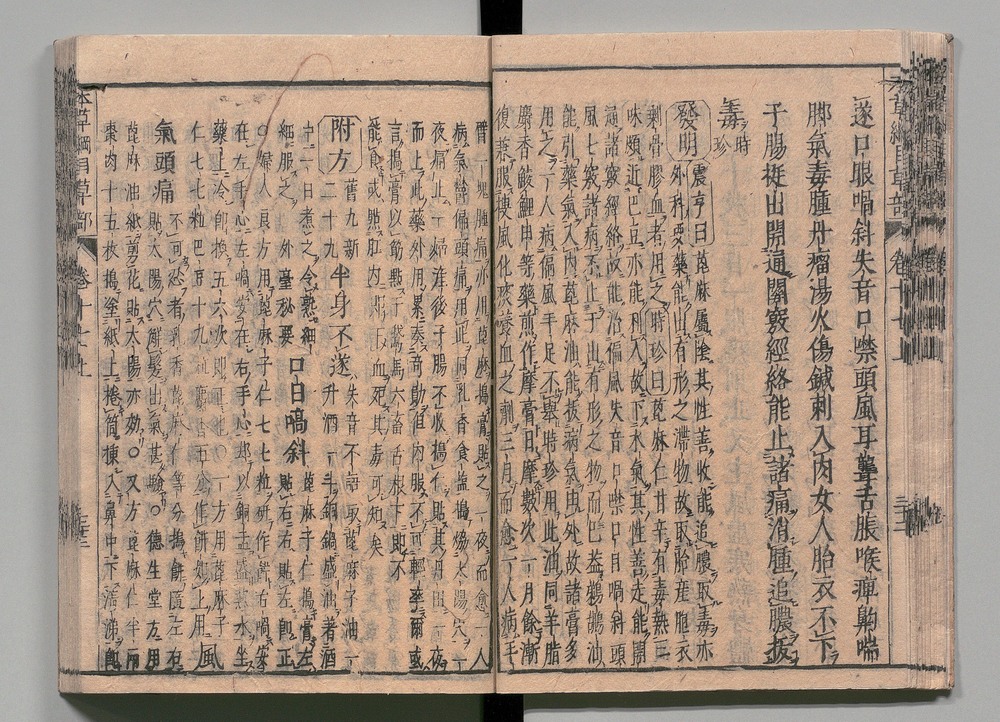 遂口眼喎斜失音口噤頭風耳聾舌脹喉痺齁喘
脚氣毒腫丹瘤湯火傷鍼刺入肉女人胎衣不下
子腸挺出開通關竅經絡能止諸痛消腫追膿拔
毒時珍
發明震亨曰蓖麻屬陰其性善收能追膿取毒亦
外科要藥能出有形之滯物故取胎産胞衣
剩骨膠血者用之時珍曰蓖麻仁甘辛有毒熱
味頗近巴豆亦能利人故下水氣其性善走能開
通諸竅經絡故能治偏風失音口噤口目喎斜頭
風七竅諸病不止于出有形之物而已蓋鵜鶘油
能引藥氣入内蓖麻油能拔病氣出外故諸膏多
用之一人病偏風手足不舉時珍用此油同羊脂
麝香鯪鯉甲等藥煎作摩膏日摩數次一月餘漸
復兼服搜風化痰養血之劑三月而愈一人病手
臂一塊腫痛亦用蓖麻搗膏貼之一夜而愈一人
病氣鬱偏頭痛用此同乳香食鹽搗熁太陽穴一
夜痛止一婦産後子腸不收搗仁貼其丹田一夜
而上此藥外用累奏奇勛但内服不可輕率爾或
言搗膏以筯點于鵞馬六畜舌根下即不
能食或點肛内即下血死其毒可知矣
附方舊九新二十九半身不遂失音不語取蓖麻子油一
升酒一斗銅鍋盛油著酒
中一日煮之令熟細
細服之外臺秘要口目喎斜蓖麻子仁搗膏左
貼右右貼左即正
○婦人良方用蓖麻子仁七七粒研作餅右喎安
在左手心左喎安在右手心却以銅盂盛熱水坐
藥上冷即換五六次即正也○一方用蓖麻子
仁七七粒巴豆十九粒麝香五分作餅如上用風
氣頭痛不可忍者乳香蓖麻仁等分搗餅隨左右
貼太陽穴解髮出氣甚驗○德生堂方用
蓖麻油紙剪花貼太陽亦効○又方蓖麻仁半兩
棗肉十五枚搗塗紙上捲筒挿入鼻中下清涕即